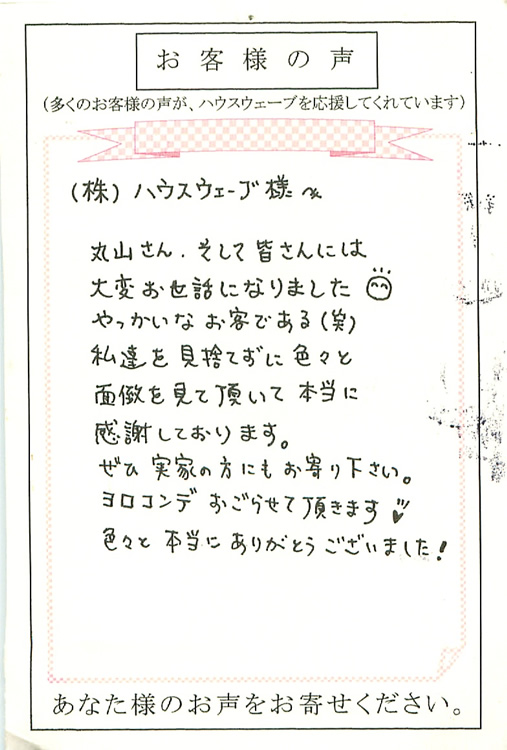 お客様の声
（多くのお客様の声が、ハウスウェーブを応援してくれています）
(株)ハウスウェーブ様へ
丸山さん.そして皆さんには
大変お世話になりました
やっかいなお客である(笑)
私達を見捨てずに色々と
面倒を見て頂いて本当に
感謝しております。
ぜひ実家の方にもお寄り下さい。
ヨロコンデおごらせて頂きます
色々と本当にありがとうございました!
あなた様のお声をお寄せください。